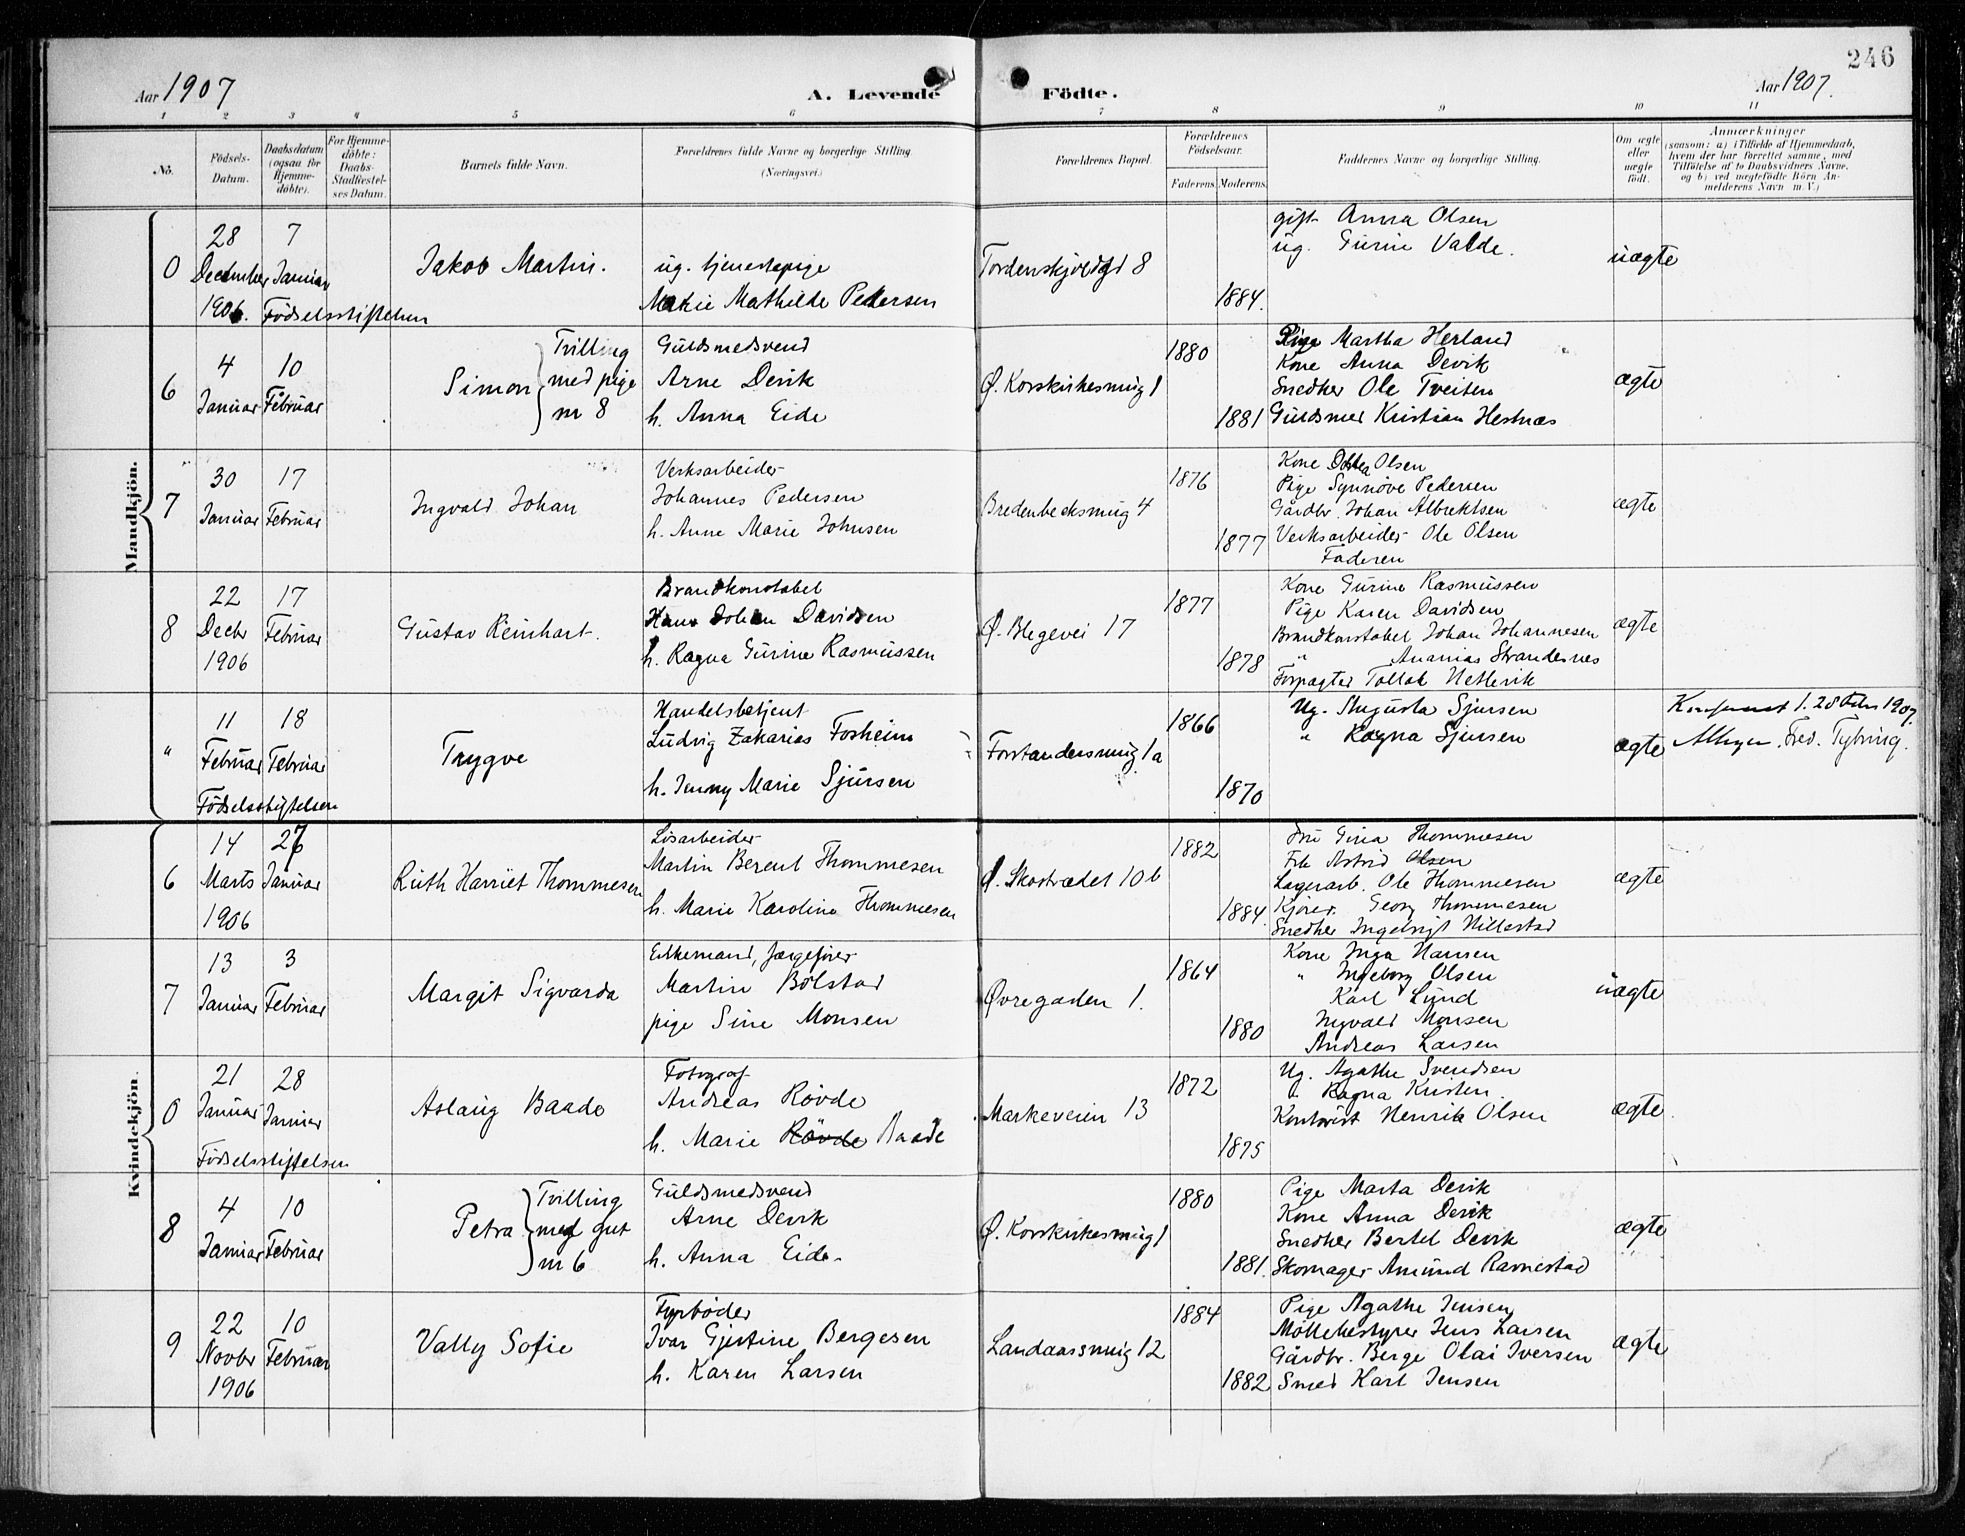 246
Aar 1907
A. Levende
Födte.
Aar 1907.
1 2 3 4 5 6 7 8 9 10 11
No.
Födsels-
Datum.
Daabsdatum
(ogsaa for
Hjemme-
döbte).
For Hjemme-
döbte:
Daabs-
Stadfæstel-
ses Datum.
Barnets fulde Navn.
Forældrenes fulde Navne og borgerlige Stilling.
(Næringsvei.)
Forældrenes Bopæl.
Forældrenes
Födselsaar.
Faderens. Moderens.
Faddernes Navne og borgerlige Stilling.
Om ægte
eller
uægte
födt.
Anmærkninger
(saasom: a) i Tilfælde af Hjemmedaab,
hvem der har forrettet samme, med
Tilföielse af to Daabsvidners Navne,
og b) ved uægtefödte Börn An-
melderens Navn m. V.)
Mandkjön.
0
28
December
1906.
7
Januar
Födselsstiftelsen
Jakob Martin.
ug. tjenestepige
Marie Mathilde Pedersen
Tordenskjoldsgd 8
1884.
gift Anna Olsen
ug. Gurine Valde.
uægte
6
4
Januar
10
Februar
Simon
Tvilling
med pige
nr 8
Guldsmedsvend
Arne Devik
h. Anna Eide
Ø. Korskirkesmug 1
1880
1881
Pige Martha Herland
Kone Anna Devik
Snedker Ole Tveiten
Guldsmed Kristian Hestnæs
ægte
7
30
Januar
17
Februar
Ingvald Johan
Verksarbeider
Johannes Pedersen
h. Anne Marie Johnsen
Bredenbecksmug 4
1876
1877
Kone Dorthea Olsen
Pige Synnöve Pedersen
Gårdbr. Johan Albrektsen
Verksarbeider Ole Olsen
Faderen
ægte
8
22
Decbr
1906
17
Februar
Gustav Reinhart.
Brandkonstabel
Hans Johan Davidsen
h. Ragna Gurine Rasmussen
Ø. Blegevei 17
1877
1878
Kone Gurine Rasmussen
Pige Karen Davidsen
Brandkonstabel Johan Johannesen
" Ananias Strandesnes
Forpagter Tollak
ægte
"
11
Februar
18
Februar
Födselsstiftelsen
Trygve
Handelsbetjent
Ludvig Zakarias Fosheim
h. Jenny Marie Sjursen
Forstandersmug 1a
1866
1870
Ug. Augusta Sjursen
" Ragna Sjursen
ægte
1907.
Fred. Tybring.
Kvindekjön.
6
14
Marts
1906
27
Januar
Ruth Harriet Thommesen
Lösarbeider
Martin Berent Thommesen
h. Marie Karoline Thommesen
Ø. Skostrædet 10b
1882
1884.
Fru Gina Thommesen
Frk Astrid Olsen
Lagerarb. Ole Thommesen
Kjörer. Georg Thommesen
Snedker Ingebrigt Hillestad
ægte
7
13
Januar
3
Februar
Margit Sigvarda
Enkemand, færgefører
Martin Bölstad
pige Sine Monsen
Øvregaden 1.
1864
1880
Kone Inga Hansen
" Ingeborg Olsen
Karl Lund
Ingvald Monsen
Andreas Larsen
uægte
0
21
Januar
28
Januar
Födselsstiftelsen
Aslaug Baade
Fotograf
Andreas Rövde
h. Marie Rövde Baade
Markeveien 13
1872
1875
Ug. Agathe Svendsen
" Ragna Kristen.
Kontorist Henrik Olsen
ægte
8
4
Januar
10
Februar
Petra
Tvilling
med gut
nr 6
Guldsmedsvend
Arne Devik
h. Anna Eide
Ø. Korskirkesmug 1
1880
1881.
Pige Marta Devik
Kone Anna Devik
Snedker Bertel Devik
Skomager Amund Ravnestad
ægte
9
22
Novbr
1906
10
Februar
Vally Sofie
Fyrböder
Ivar Gjertine Bergesen
h. Karen Larsen
Landaassmug 12
1884
1882
Pige Agathe Jensen
Möllebestyrer Jens Larsen
Gårdbr. Berge Olai Iversen
Smed Karl Jensen
ægte